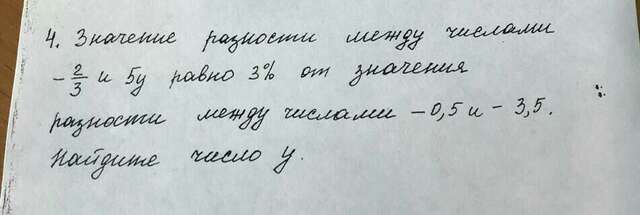 4. Значение разности между числами
-2/3 и 5y равно 3% от значения
разности между числами -0,5 и -3,5.
Найдите число y.